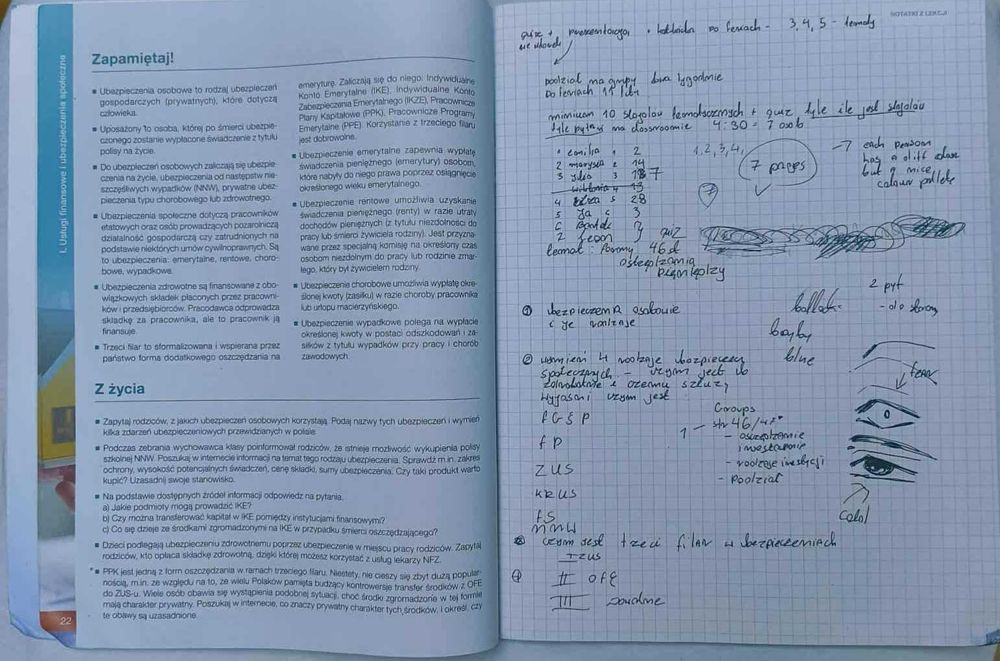 I. Usługi finansowe i ubezpieczenia społeczne
Zapamiętaj!
Ubezpieczenia osobowe to rodzaj ubezpieczeń
gospodarczych (prywatnych), które dotyczą
człowieka.
Uposażony to osoba, której po śmierci ubezpie-
czonego zostanie wypłacone świadczenie z tytułu
polisy na życie.
Do ubezpieczeń osobowych zaliczają się ubezpie-
czenia na życie, ubezpieczenia od następstw nie-
szczęśliwych wypadków (NNW), prywatne ubez-
pieczenia typu chorobowego lub zdrowotnego.
Ubezpieczenia społeczne dotyczą pracowników
etatowych oraz osób prowadzących pozarolniczą
działalność gospodarczą czy zatrudnionych na
podstawie niektórych umów cywilnoprawnych. Są
to ubezpieczenia: emerytalne, rentowe, choro-
bowe, wypadkowe.
Ubezpieczenia zdrowotne są finansowane z obo-
wiązkowych składek płaconych przez pracowni-
ków i przedsiębiorców. Pracodawca odprowadza
składkę za pracownika, ale to pracownik ją
finansuje.
Trzeci filar to sformalizowana i wspierana przez
państwo forma dodatkowego oszczędzania na
emeryturę. Zaliczają się do niego: Indywidualne
Konto Emerytalne (IKE), Indywidualne Konto
Zabezpieczenia Emerytalnego (IKZE), Pracownicze
Plany Kapitałowe (PPK), Pracownicze Programy
Emerytalne (PPE). Korzystanie z trzeciego filaru
jest dobrowolne.
Ubezpieczenie emerytalne zapewnia wypłatę
świadczenia pieniężnego (emerytury) osobom,
które nabyły do niego prawa poprzez osiągnięcie
określonego wieku emerytalnego.
Ubezpieczenie rentowe umożliwia uzyskanie
świadczenia pieniężnego (renty) w razie utraty
dochodów pieniężnych (z tytułu niezdolności do
pracy lub śmierci żywiciela rodziny). Jest przyzna-
wane przez specjalną komisję na określony czas
osobom niezdolnym do pracy lub rodzinie zmar-
łego, który był żywicielem rodziny.
Ubezpieczenie chorobowe umożliwia wypłatę okre-
ślonej kwoty (zasiłku) w razie choroby pracownika
lub urlopu macierzyńskiego.
Ubezpieczenie wypadkowe polega na wypłacie
określonej kwoty w postaci odszkodowań i za-
siłków z tytułu wypadków przy pracy i chorób
zawodowych.
Z życia
Zapytaj rodziców, z jakich ubezpieczeń osobowych korzystają. Podaj nazwy tych ubezpieczeń i wymień
kilka zdarzeń ubezpieczeniowych przewidzianych w polisie.
Podczas zebrania wychowawca klasy poinformował rodziców, że istnieje możliwość wykupienia polisy
szkolnej NNW. Poszukaj w internecie informacji na temat tego rodzaju ubezpieczenia. Sprawdź m.in. zakres
ochrony, wysokość potencjalnych świadczeń, cenę składki, sumy ubezpieczenia. Czy taki produkt warto
kupić? Uzasadnij swoje stanowisko.
Na podstawie dostępnych źródeł informacji odpowiedz na pytania.
a) Jakie podmioty mogą prowadzić IKE?
b) Czy można transferować kapitał w IKE pomiędzy instytucjami finansowymi?
c) Co się dzieje ze środkami zgromadzonymi na IKE w przypadku śmierci oszczędzającego?
Dzieci podlegają ubezpieczeniu zdrowotnemu poprzez ubezpieczenie w miejscu pracy rodziców. Zapytaj
rodziców, kto opłaca składkę zdrowotną, dzięki której możesz korzystać z usług lekarzy NFZ.
* PPK jest jedną z form oszczędzania w ramach trzeciego filaru. Niestety, nie cieszy się zbyt dużą popular-
nością, m.in. ze względu na to, że wielu Polaków pamięta budzący kontrowersje transfer środków z OFE
do ZUS-u. Wiele osób obawia się wystąpienia podobnej sytuacji, choć środki zgromadzone w tej formie
mają charakter prywatny. Poszukaj w internecie, co znaczy prywatny charakter tych środków, i określ, czy
te obawy są uzasadnione.
22
NOTATKI Z LEKCJI
quiz + po feriach - 3, 4, 5 - tematy
podział na grupy dwa tygodnie
po feriach
minimum 10 slajdów tematycznych + quiz tyle ile jest slajdów
tyle pytań na classroomie 4:30 = 7 osób
emilia 2
2 marysia 14
3 julia 18 7
wiktoria 4 13
4 5 28
5 ja c 3
1, 2, 3, 4,
7 pages
→ each person
has a diff
but a nice
colour palette
quiz
temat: 46 sd
pieniędzy
① ubezpieczenia osobowe
i je rodzaje
2 pyt
baby
blue
② wymień 4 rodzaje ubezpieczeń
społecznych - czym jest ub
zdrowotne i czemu służy
wyjaśni czym jest
FGŚP
FP
ZUS
KRUS
FS
NNW
Groups
1 - str 46/47
- oszczędzanie
inwestowanie
- rodzaje inwestycji
- podział
czym jest trzeci filar w ubezpieczeniach
I ZUS
④ II OFE
III